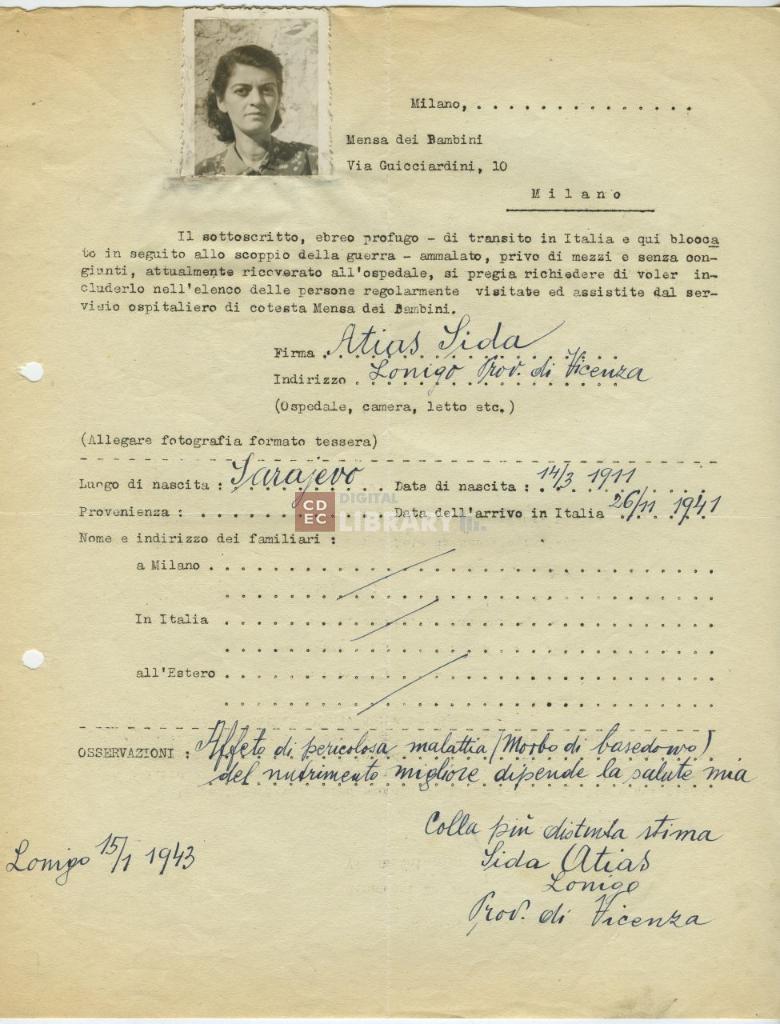 Milano, . . . . . . . . . . . . . . .
Mensa dei Bambini
Via Guicciardini, 10
M i l a n o
Il sottoscritto, ebreo profugo - di transito in Italia e qui blocca
to in seguito allo scoppio della guerra - ammalato, privo di mezzi e senza con-
giunti, attualmente ricoverato all'ospedale, si pregia richiedere di voler in-
cluderlo nell'elenco delle persone regolarmente visitate ed assistite dal ser-
vizio ospitaliero di cotesta Mensa dei Bambini.
Firma Atias Sida
Indirizzo Lonigo Prov. di Vicenza
(Ospedale, camera, letto etc.)
(Allegare fotografia formato tessera)
Luogo di nascita : Sarajevo Data di nascita : 14/3 1911
Provenienza : . . . . . . . . . . Data dell'arrivo in Italia 26/11 1941
CD EC DIGITAL LIBRARY
Nome e indirizzo dei familiari :
a Milano
In Italia
all'Estero
OSSERVAZIONI : Affeto di pericolosa malattia (Morbo di basedowo)
del nutrimento migliore dipende la salute mia
Colla più distinta stima
Lonigo 15/1 1943
Sida Atias
Lonigo
Prov. di Vicenza